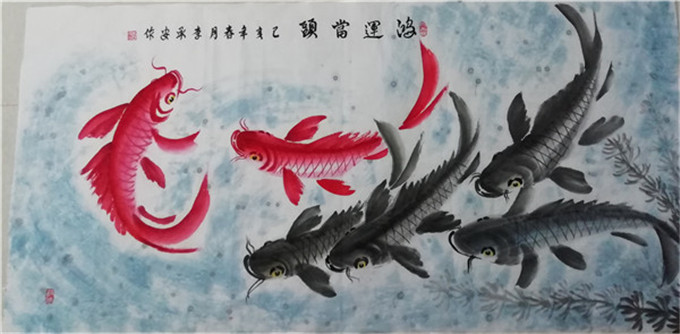 鴻運當頭 己亥年春月李承安作